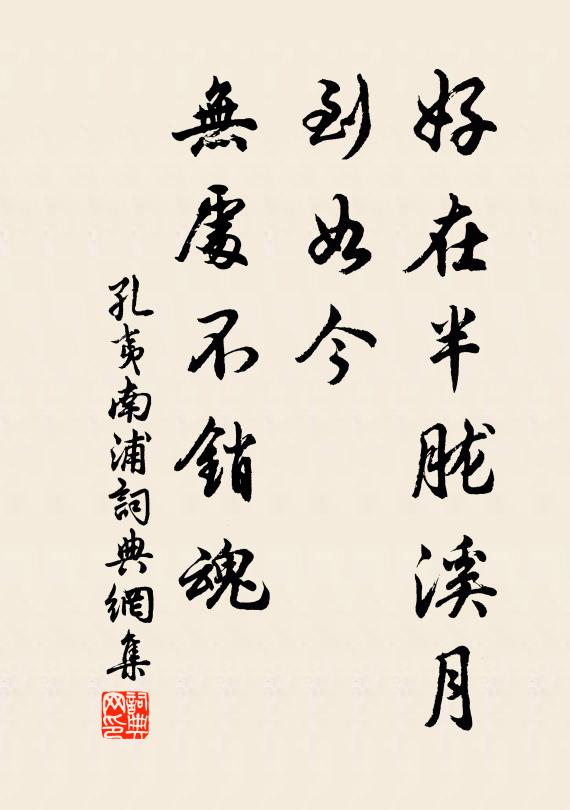 好在半朧溪月
到如今
無處不銷魂
孔夷南浦詞典網集
詞典网印